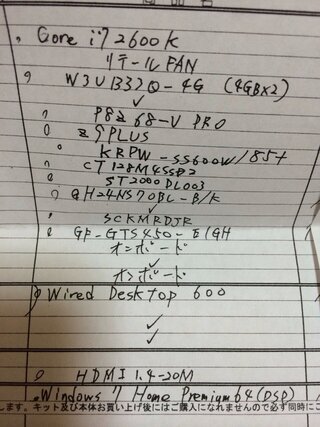 Core i7 2600K
リテールFAN
W3U1333Q-4G (4GBX2)
P8Z68-V PRO
Z9 PLUS
KRPW-SS600W/85+
CT128M4SSD2
ST2000DL003
GH24NS70BL-B/K
SCKMRDJR
GF-GTS450-E1GH
オンボード
オンボード
Wired Desktop 600
HDMI 1.4-20M
Windows 7 Home Premium64(DSP)
します。キット及び本体お買い上げ後にはご購入になれませんので必ず同時にご